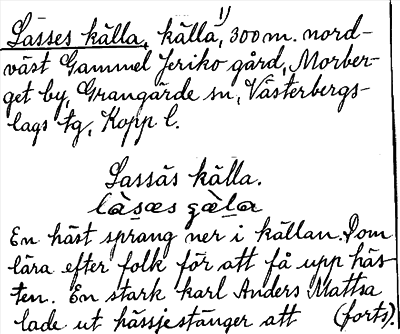 Lasses källa, källa,¹⁾ 300 m. nord-
väst Gammel Jeriko gård, Morber-
get by, Grangärde sn, Västerbergs-
lags tg, Kopp l.
Lassäs källa.
làsæs gæ̀la
En häst sprang ner i källan. Dom
lära efter folk för att få upp häs-
ten. En stark karl Anders Mattsa
lade ut hässjestänger att (forts).